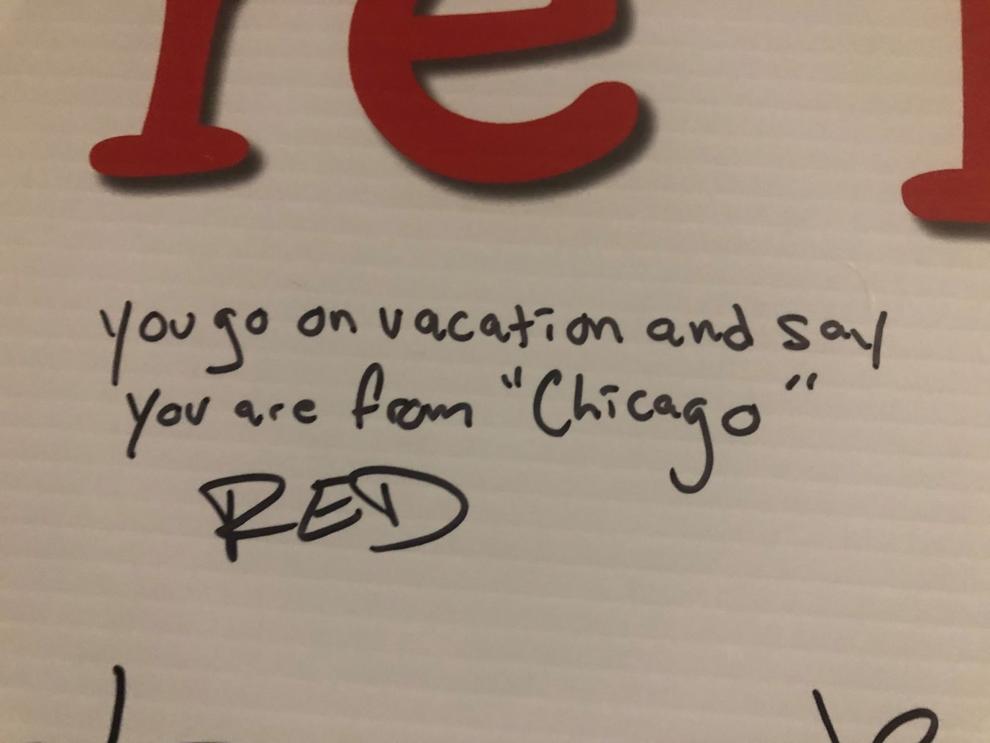 re
you go on vacation and say
you are from "Chicago"
RED